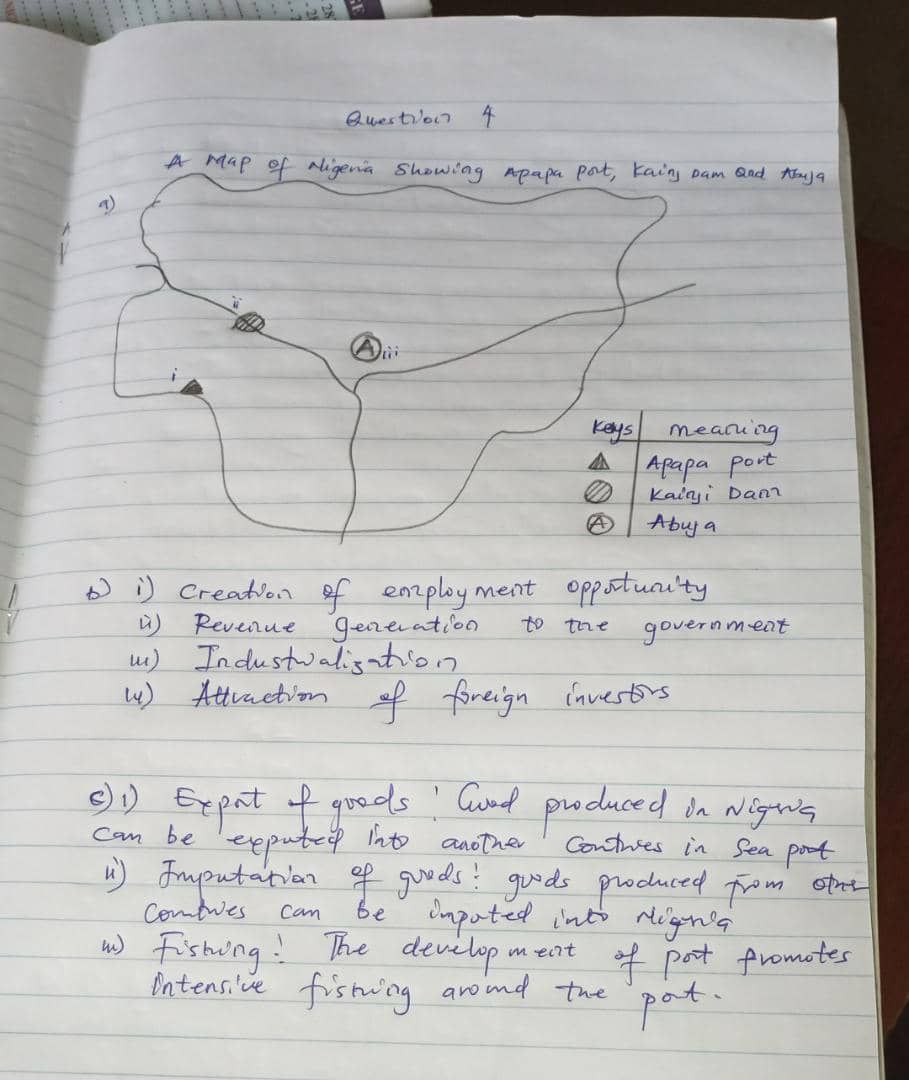 Question 4
A Map of Nigeria Showing Apapa Port, Kainj Dam and Abuja
a)
ii
A iii
i
Keys meaning
Apapa port
Kainji Dam
A Abuja
b) i) Creation of employment opportunity
ii) Revenue generation to the government
iii) Industrialization
iv) Attraction of foreign investors
c) i) Export of goods: Good produced in Nigeria
can be exported into another Contries in Sea port
ii) Importation of goods: goods produced from other
Contries can be imported into Nigeria
iii) Fishing: The development of port promotes
intensive fishing around the port.